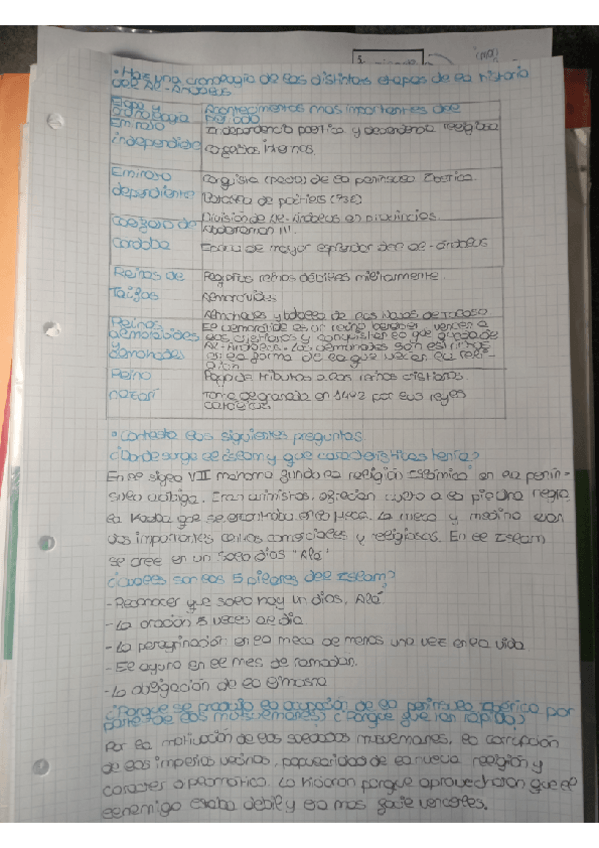 • Haz una cronología de las distintas etapas de la historia
de Al-Ándalus
Etapa y cronología
Acontecimientos más importantes del periodo
Emirato independiente
Independencia política y dependencia religiosa
Emirato dependiente
Conquista (rápida) de la península Ibérica.
Batalla de poitiers (732)
División de Al-Ándalus en provincias.
Califato de Córdoba
Abderramán III.
mayor esplendor de al-Ándalus
Reinos de Taifas
Pequeños reinos débiles militarmente.
Almorávides
Almohades y batalla de las Navas de Tolosa
Reinos almorávides y almohades
El almorávide es un reino bereber vencen a
los cristianos y conquistan lo que queda de
Reino nazarí
Pago de tributos a los reinos cristianos.
Toma de granada en 1492 por sus reyes
católicos.
• Contesta las siguientes preguntas.
¿Dónde surge el islam y qué características tenía?
En el siglo VII mahoma fundó la religión islámica en la penín-
sula arábiga. Eran animistas, ofrecían culto a la piedra negra
la Kaaba que se encontraba en la meca. La meca y medina eran
dos importantes centros comerciales y religiosos. En el Islam
se cree en un solo dios "Alá"
¿Cuáles son los 5 pilares del Islam?
- Reconocer que solo hay un dios, Alá.
- La oración 5 veces al día
- La peregrinación en la meca al menos una vez en la vida
- El ayuno en el mes de ramadán.
- La obligación de la limosna
¿Porque se produjo la ocupación de la península Ibérica por
parte de los musulmanes? ¿Porque fue tan rápido?
Por la motivación de los soldados musulmanes, la corrupción
de los imperios vecinos, popularidad de la nueva religión y
carácter diplomático. Lo hicieron porque aprovecharon que el
enemigo estaba débil y era más fácil vencerles.